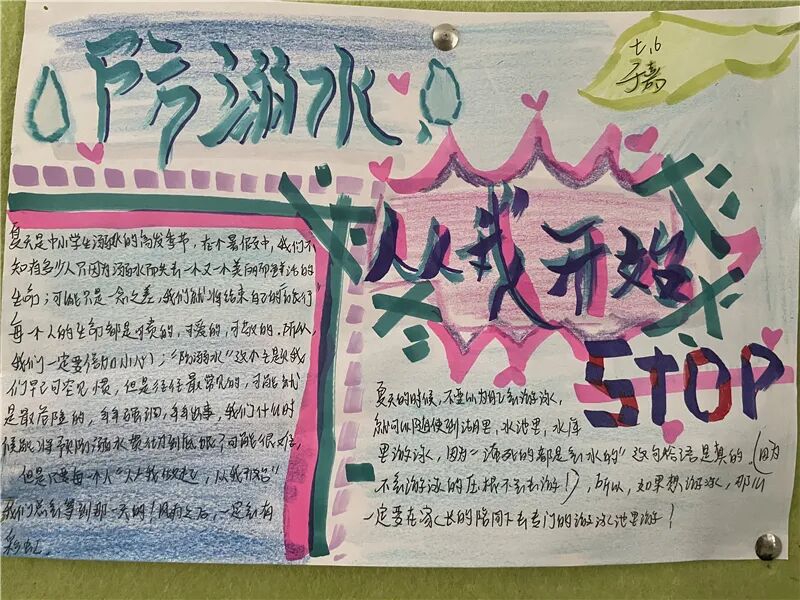 防溺水
七.6
从我开始
STOP
夏天是中小学生溺水的高发季节，在个暑假中，我们不
知有多少人只因为溺水而失去一个又一个美丽而鲜活的
生命；可能只是一念之差，我们就将结束自己的"旅行"
每一个人的生命都是可贵的，可爱的，可敬的，所以，
我们一定要倍加小心；"防溺水"这个主题我
们早已司空见惯，但是往往最常见的，可能就
是最危险的，年年强调，年年出事，我们什么时
候能将预防溺水
但是只要每一个人"人人我做起，从我开始"
我们总会等到那一天的！风雨之后，一定会有
彩虹。
夏天的时候，不要以为自己会游泳，
就可以随便到湖里，水池里，水库
里游泳，因为"淹死的都是会水的"这句俗语是真的（因为
不会游泳的压根不会去游！），所以，如果想游泳，那么
一定要在家长的陪同下去专门的游泳池里游！